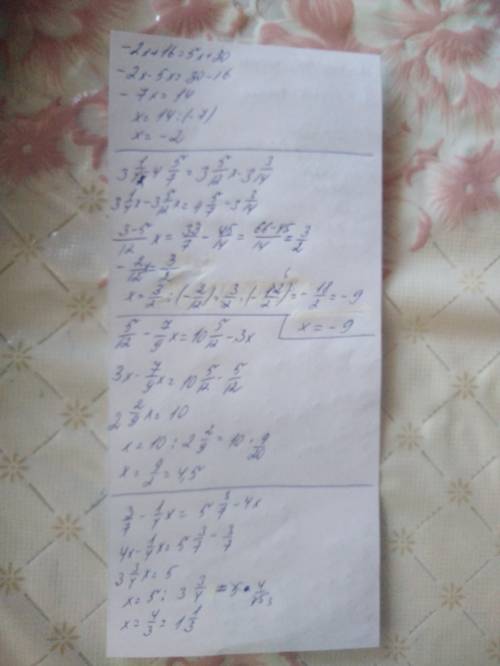 -2x+16=5x+30
-2x-5x=30-16
-7x=14
x=14:(-7)
x=-2
3 1/4 x - 4 5/7 = 3 5/12 x - 3 3/14
3 1/4 x - 3 5/12 x = 4 5/7 - 3 3/14
(3-5)/12 x = 33/7 - 45/14 = (66-45)/14 = 3/2
-2/12 x = 3/2
x = 3/2 : (-2/12) = 3/2 · (-12/2) = -18/2 = -9
x=-9
5/12 - 7/9 x = 10 5/12 - 3x
3x - 7/9 x = 10 5/12 - 5/12
2 2/9 x = 10
x = 10 : 2 2/9 = 10 · 9/20
x = 9/2 = 4,5
3/7 - 1/4 x = 5 3/7 - 4x
4x - 1/4 x = 5 3/7 - 3/7
3 3/4 x = 5
x = 5 : 3 3/4 = 5 · 4/15 3
x = 4/3 = 1 1/3